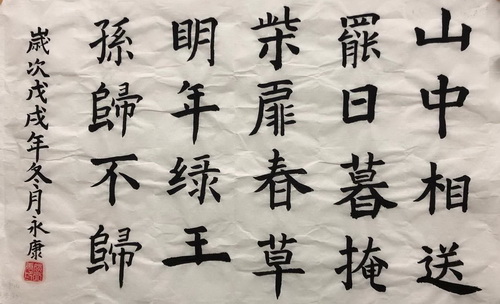 山中相送
罷日暮掩
柴扉春草
明年绿王
孫歸不歸
歲次戊戌年冬月永康